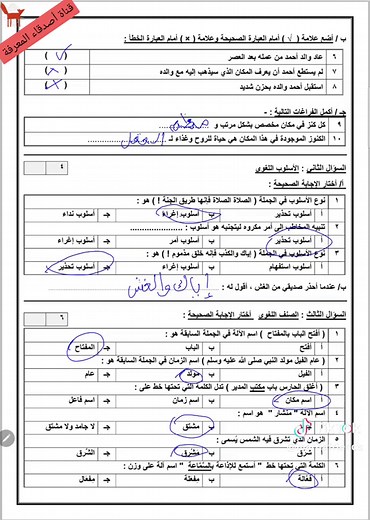 قناة أصدقاء المعرفة
ب / أضع علامة ( √ ) أمام العبارة الصحيحة وعلامة ( × ) أمام العبارة الخطأ :
٦ عاد والد أحمد من عمله بعد العصر ( √ )
٧ لم يستطع أحمد أن يعرف المكان الذي سيذهب إليه مع والده ( × )
٨ استقبل أحمد والده بحزن شديد ( × )
جـ / أكمل الفراغات التالية : -
٩ كل كنز في مكان مخصص بشكل مرتب و منظم
١٠ الكنوز الموجودة في هذا المكان هي حياة للروح وغذاء لـ للعقل
السؤال الثاني : الأسلوب اللغوي ٤
أ / أختار الإجابة الصحيحة :
١ نوع الأسلوب في الجملة ( الصلاة الصلاة فإنها طريق الجنة ! ) هو :
أ أسلوب تحذير ب أسلوب إغراء جـ أسلوب نداء
٢ تنبيه المخاطب إلى أمر مكروه ليتجنبه هو أسلوب : ....................
أ أسلوب تحذير ب أسلوب أمر جـ أسلوب إغراء
٣ نوع الأسلوب في الجملة ( إياك والكذب فإنه خلق مذموم ! ) هو :
أ أسلوب استفهام ب أسلوب إغراء جـ أسلوب تحذير
ب / عندما أحذر صديقي من الغش ، أقول له : إياك والغش
السؤال الثالث : الصنف اللغوي أختار الإجابة الصحيحة : ٦
١ ( أفتح الباب بالمفتاح ) اسم الآلة في الجملة السابقة هو :
أ أفتح ب الباب جـ المفتاح
٢ ( عام الفيل مولد النبي صلى الله عليه وسلم ) اسم الزمان في الجملة السابقة هو :
أ الفيل ب مولد جـ عام
٣ ( أغلق الحارس باب مكتب المدير ) تدل الكلمة التي تحتها خط على :
أ اسم مكان ب اسم زمان جـ اسم فاعل
٤ اسم الآلة " منشار " هو اسم :
ب مشتق جـ لا جامد ولا مشتق
٥ الزمان الذي تشرق فيه الشمس يُسمى :
أ شرق ب مشرق جـ الشرق
٦ الكلمة التي تحتها خط " أستمع للإذاعة بالسماعة " اسم آلة على وزن :
أ فعالة ب مفعلة جـ مفعال